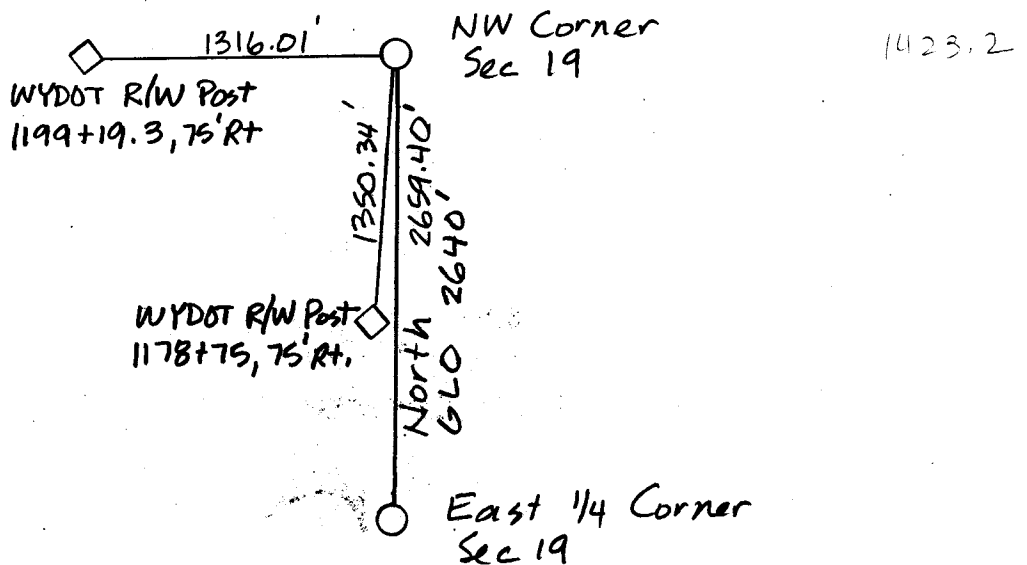 1316.01'
NW Corner
Sec 19
1423.2
WYDOT R/W Post
1199+19.3, 75'Rt
1350.34'
2659.40'
North
GLO 2640'
WYDOT R/W Post
1178+75, 75'Rt.
East 1/4 Corner
Sec 19